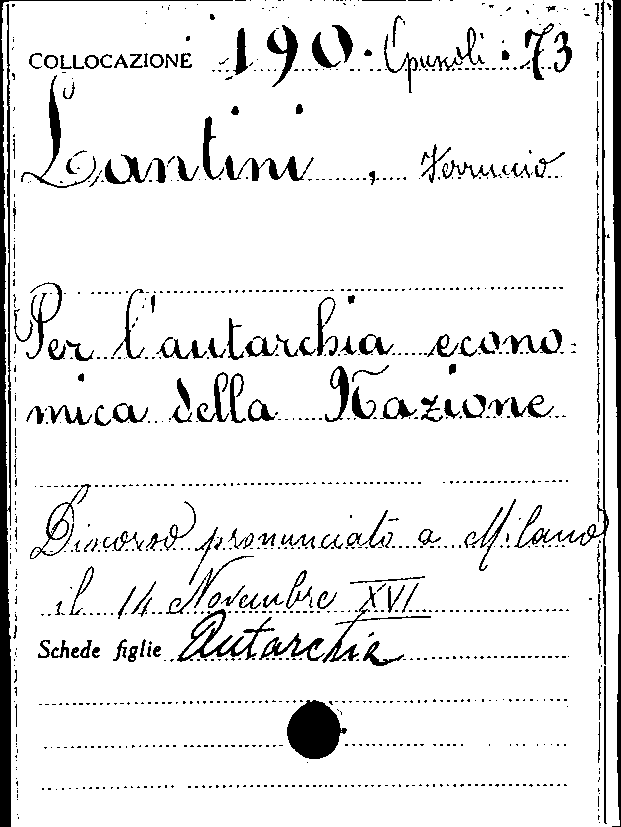 COLLOCAZIONE 190. Opuscoli. 73
Lantini, Ferruccio
Per l'autarchia econo-
mica della Nazione
Discorso pronunciato a Milano
il 14 Novembre XVI
Schede figlie Autarchia